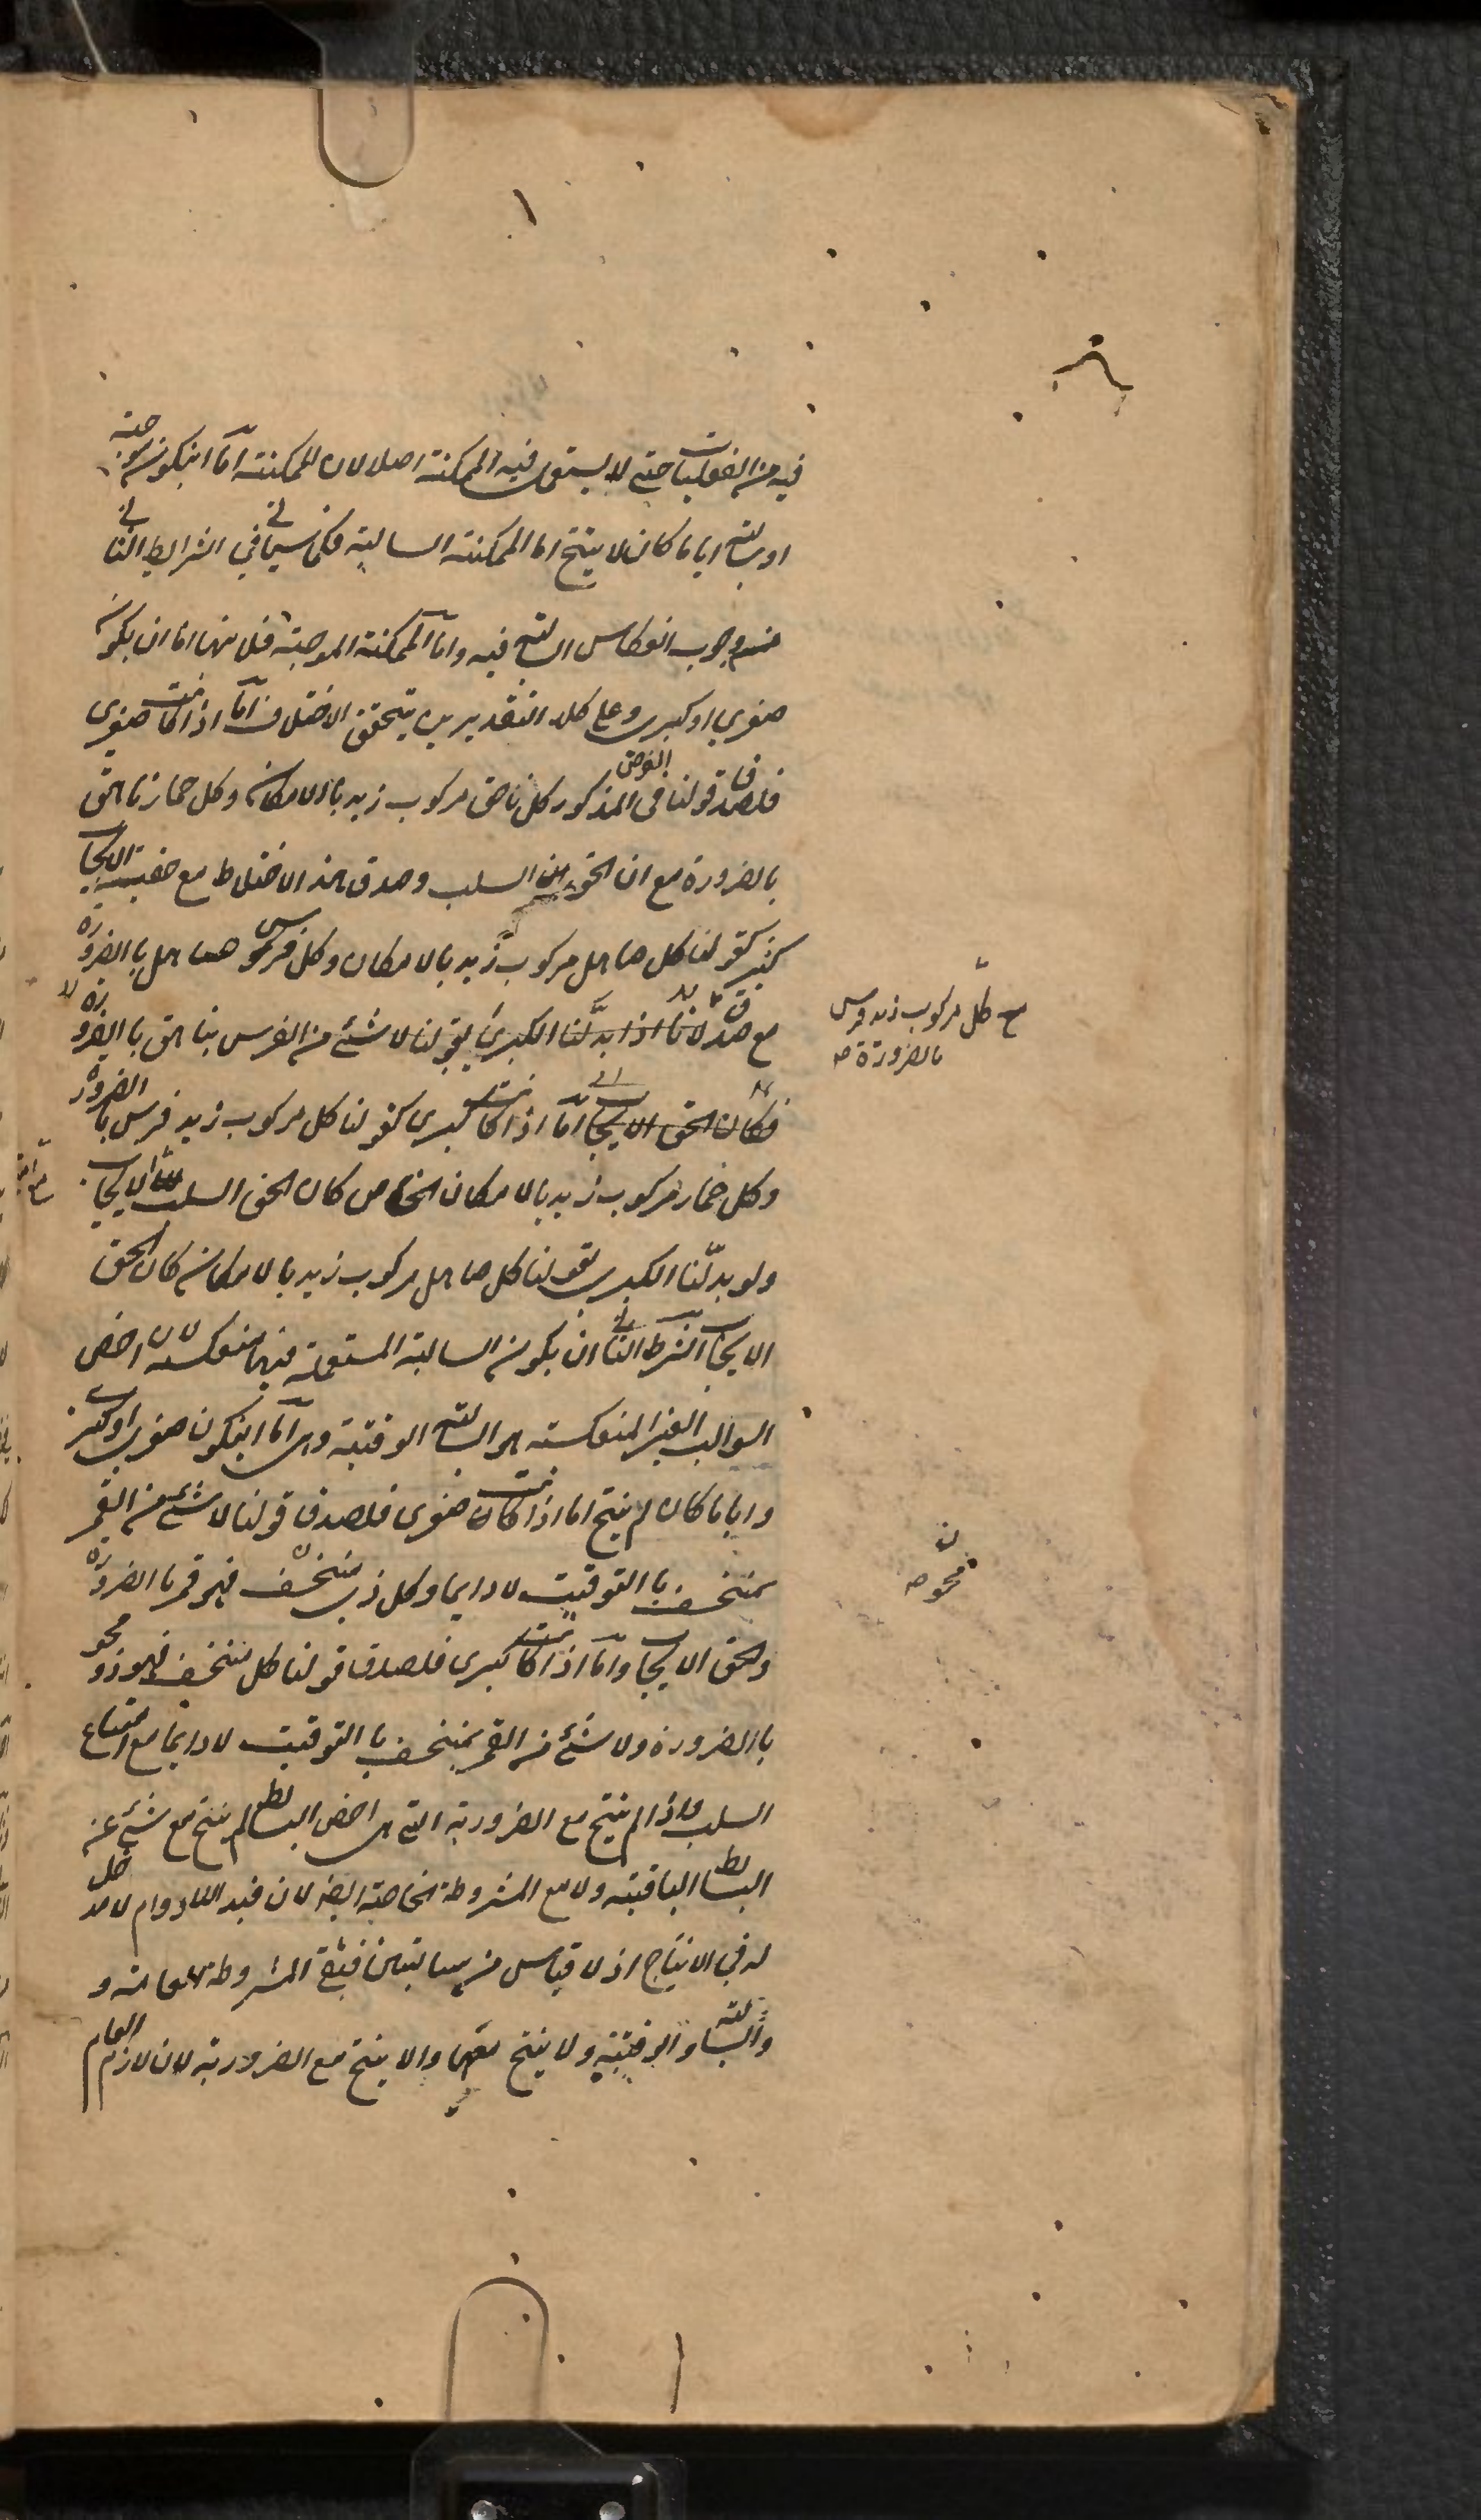 فيه من الفعليات حتى لا يستعمل فيه الممكنة اصلا لان الممكنة اما ان يكون موجبة
او سالبة اياما كان لا ينتج اما الممكنة السالبة فلما سياتي في الشرايط الثاني
من وجوب انعكاس السالبة فيه واما الممكنة الموجبة فلانها اما ان يكون
صغرى او كبرى وعلى كلا التقديرين يتحقق الاختلاف اما اذا كانت صغرى
فلصدق قولنا في الفرض المذكور كل ناهق مركوب زيد بالامكان وكل حمار ناهق
بالضرورة مع ان الحق السلب وصدق هذا الاختلاط مع حقية الايجاب
كثير كقولنا كل صاهل مركوب زيد بالامكان وكل فرس صاهل بالضرورة
مع صدق لانا اذا بدلنا الكبرى بقولنا لا شئ من الفرس بناهق بالضرورة
فكان الحق الايجاب اما اذا كانت كبرى كقولنا كل مركوب زيد فرس بالضرورة
وكل حمار مركوب زيد بالامكان الخاص كان الحق السلب الايجاب
ولو بدلنا الكبرى بقولنا كل صاهل مركوب زيد بالامكان كان الحق
الايجاب الشرط الثاني ان يكون السالبة المستعملة فيها منعكسة لان اخص
السوالب الغير المنعكسة هي السالبة الوقتية وهي اما ان يكون صغرى او كبرى
واياما كان لم ينتج اما اذا كانت صغرى فلصدق قولنا لا شئ من القمر
بمنخسف بالتوقيت لا دايما وكل ذي منخسف فهو قمر بالضرورة
والحق الايجاب واما اذا كانت كبرى فلصدق قولنا كل منخسف فهو ذو محو
بالضرورة ولا شئ من القمر بمنخسف بالتوقيت لا دايما مع امتناع
السلب واذا لم ينتج مع الضرورية التي هي اخص البسائط لم ينتج مع شئ من
البسائط الباقية ولا مع المشروطة الخاصة ايضا لان قيد اللادوام لا مدخل
له في الانتاج اذ لا قياس من سالبتين فبقي المشروطة العامة و
والسالبة الوقتية ولا ينتج معها والا ينتج مع الضرورية لان لازم العام
مع كل مركوب زيد فرس
بالضرورة صح
محو صح